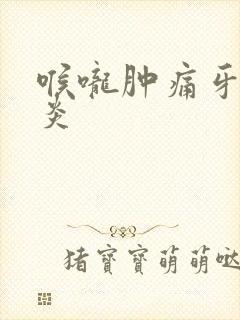 喉嚨肿痛牙
炎
猪寶寶萌萌哒